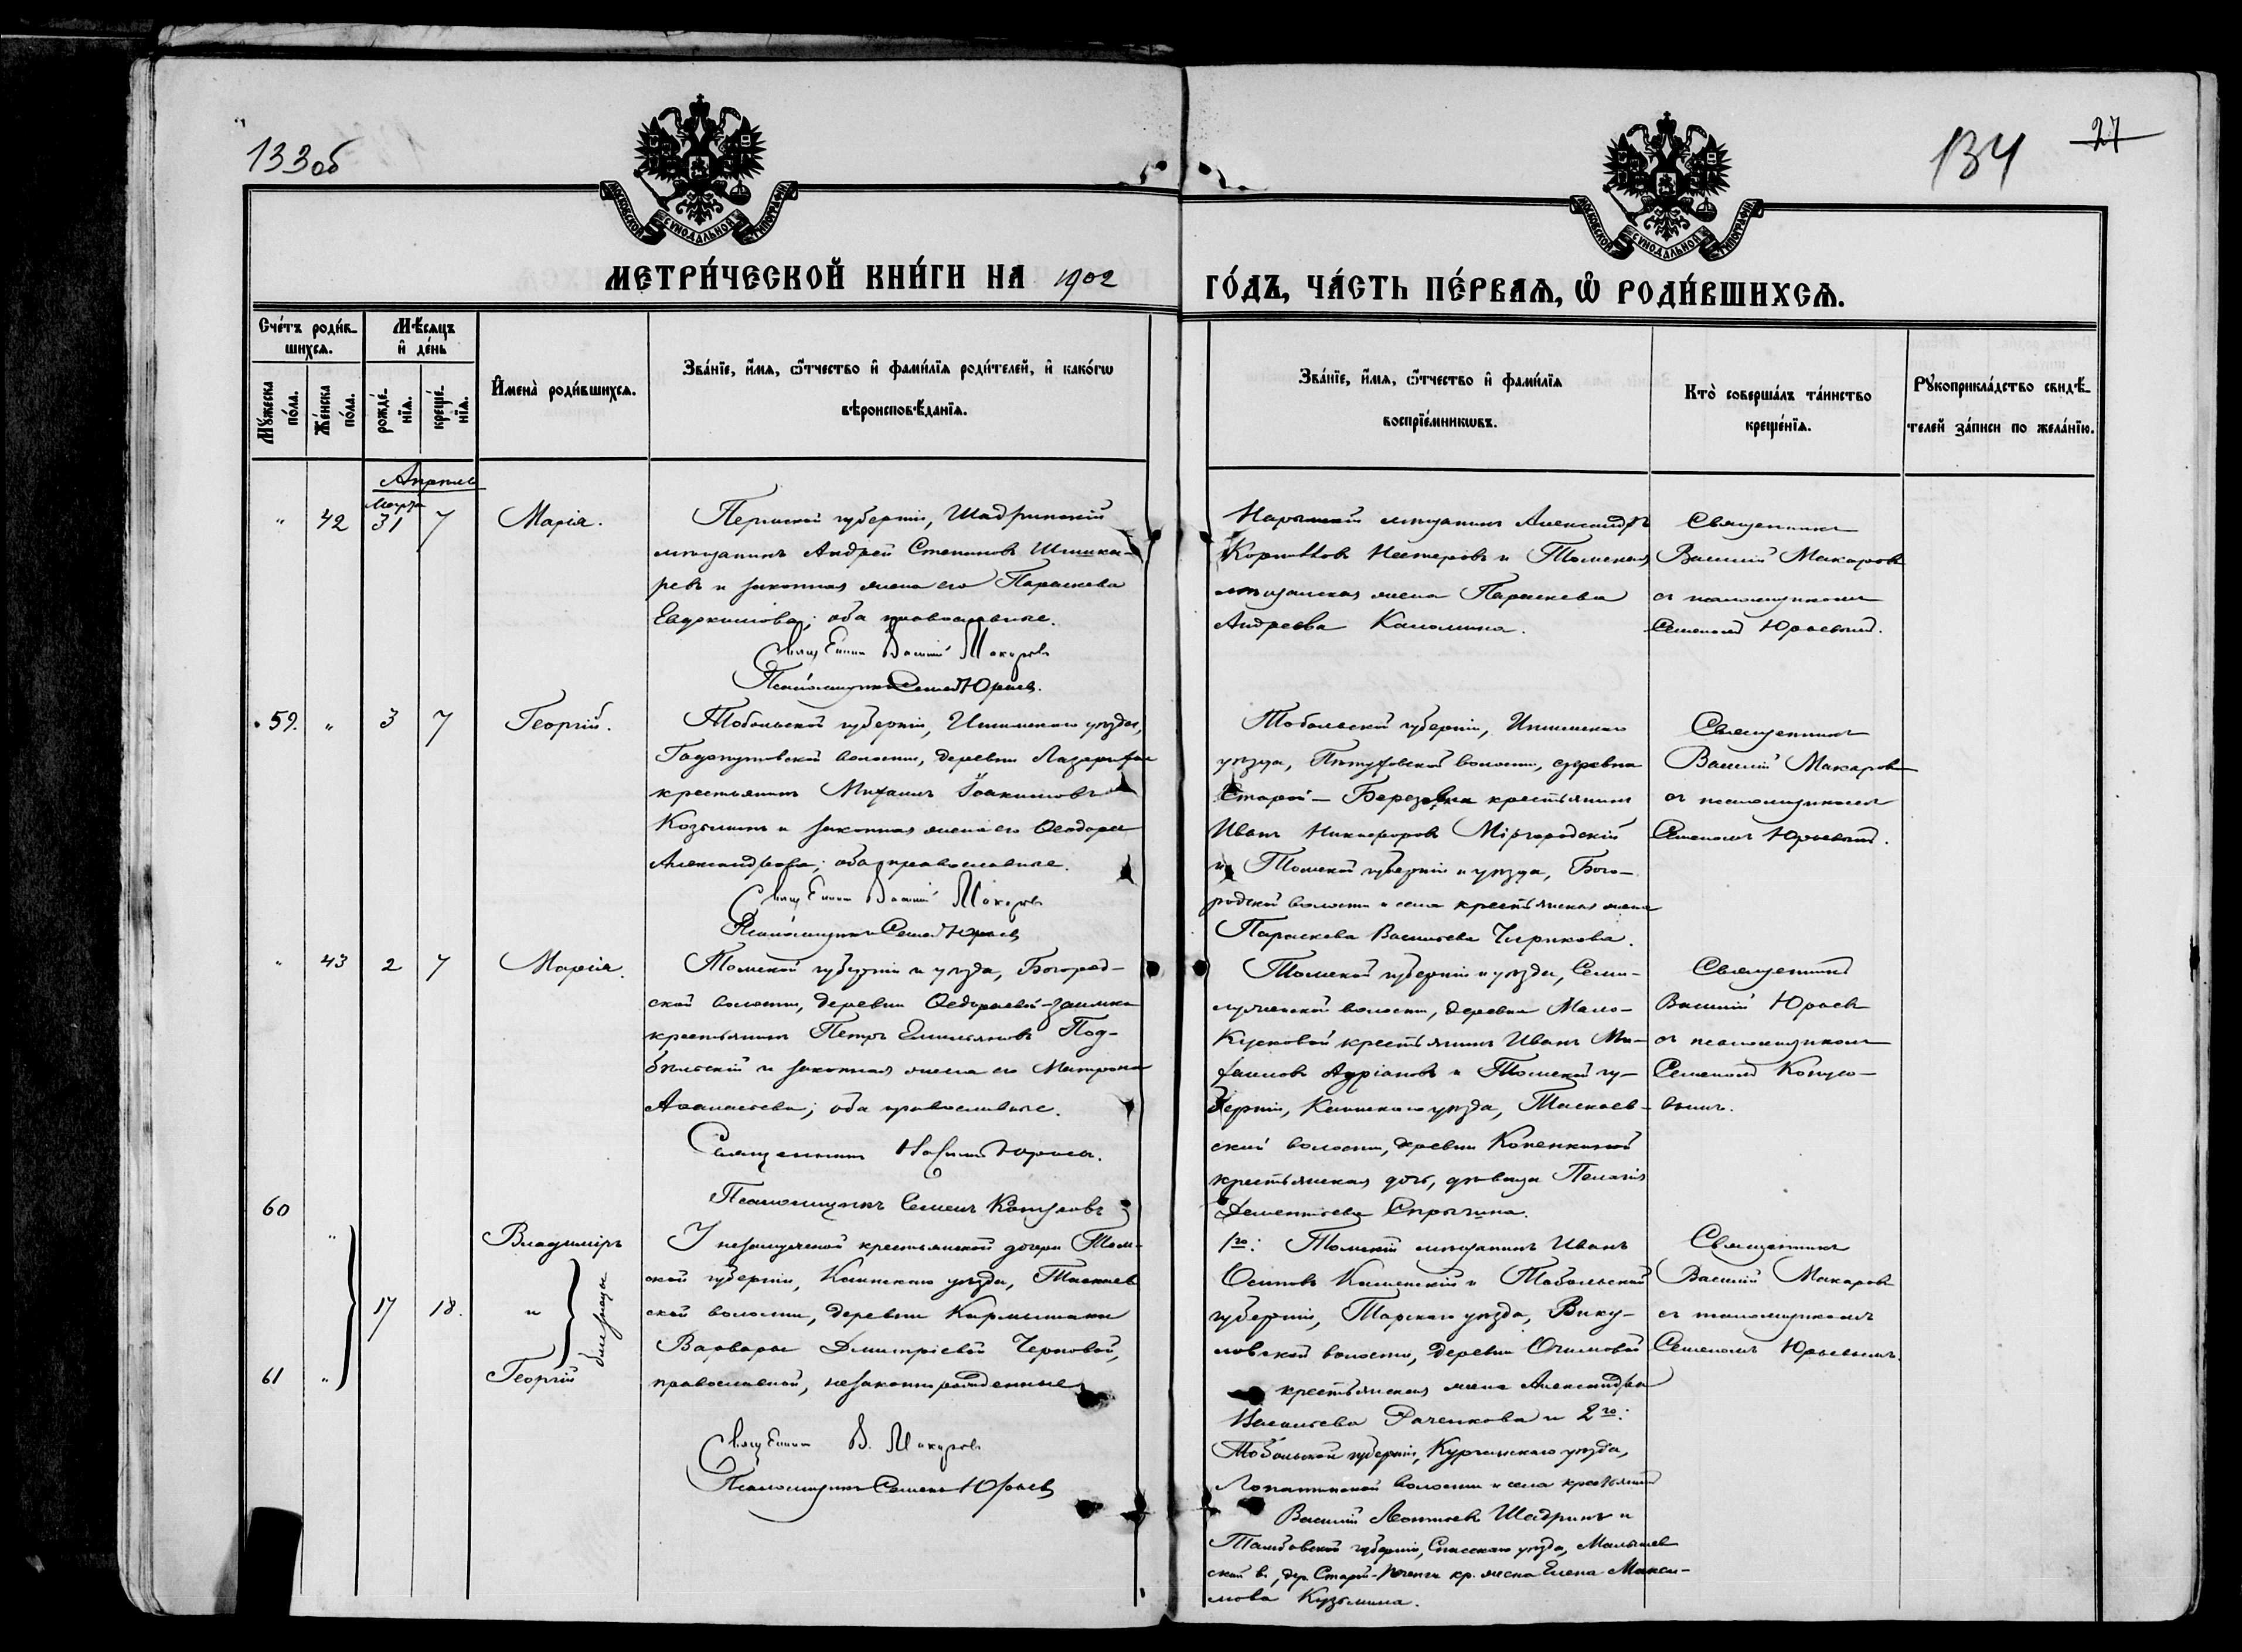 133об
134
27
МОСКОВСКОЙ СѴНОДАЛЬНОЙ ТИПОГРАФІИ
МОСКОВСКОЙ СѴНОДАЛЬНОЙ ТИПОГРАФІИ
МЕТРИ́ЧЕСКОЙ КНИ́ГИ НА 1902
ГО́ДЪ, ЧА́СТЬ ПЕ́РВАѦ, Ѡ҆ РОДИ́ВШИХСѦ.
Сче́тъ роди́в-
шихсѧ.
Мꙋ́жеска по́ла.
Же́нска по́ла.
Мѣ́сѧцъ
и҆ де́нь
рожде́-нїѧ.
креще́-нїѧ.
И҆мена̀ роди́вшихсѧ.
Зва́нїе, и҆́мѧ, ѻ҆́тчество и҆ фами́лїѧ роди́телей, и҆ како́гѡ
вѣроисповѣ́данїѧ.
Зва́нїе, и҆́мѧ, ѻ҆́тчество и҆ фами́лїѧ
воспрїе́мникѡвъ.
Кто̀ соверша́лъ та́инство
креще́нїѧ.
Рꙋкоприкла́дство свидѣ́-
телей за́писи по жела́нїю.
Апрель
" 42 Марта 31 7 Марія.
Пермской губерніи, Шадринскій
мѣщанинъ Андрей Степановъ Шишка-
ревъ и законная жена его Параскева
Евдокимова; оба православные.
Священникъ Василій Макаровъ
Псаломщикъ Семенъ Юрьевъ.
Нарымскій мѣщанинъ Александръ
Корниловъ Нестеровъ и Томская
мѣщанская жена Параскева
Андреева Каломина.
Священникъ
Василій Макаровъ
съ псаломщикомъ
Семеномъ Юрьевымъ.
59. " 3 7 Георгій.
Тобольской губерніи, Ишимскаго уѣзда,
волости, деревни
крестьянинъ Михаилъ Іоакимовъ
Козьминъ и законная жена его Ѳеодора
Александрова; оба православные.
Священникъ Василій Макаровъ
Псаломщикъ Семенъ Юрьевъ
Тобольской губерніи, Ишимскаго
уѣзда, Пѣтуховской волости, деревни
Старой-Березовка крестьянинъ
Иванъ Никифоровъ Міргородскій
и Томской губерніи и уѣзда, Бого-
родской волости и села крестьянская жена
Параскева Васильева Чирикова.
Священникъ
Василій Макаровъ
съ псаломщикомъ
Семеномъ Юрьевымъ.
" 43 2 7 Марія.
Томской губерніи и уѣзда, Богород-
ской волости, деревни Ѳедораевой-заимки
крестьянинъ Петръ Емельяновъ Под-
бѣльскій и законная жена его Матрона
Аѳанасьева; оба православные.
Священникъ Василій Юрьевъ.
Псаломщикъ Семенъ Копуловъ
Томской губерніи и уѣзда, Семи-
лужской волости, деревни Мало-
Кусковой крестьянинъ Иванъ Ми-
хаиловъ Адріановъ и Томской гу-
берніи, Каинскаго уѣзда, Таскаев-
ской волости, деревни Копенкиной
крестьянская дочь, дѣвица Пелагія
Дементьева Спрыгина.
Священникъ
Василій Юрьевъ
съ псаломщикомъ
Семеномъ Копуло-
вымъ.
60 " Владиміръ
17 18. и близнецы
61 " Георгій
У незамужней крестьянской дочери Том-
ской губерніи, Каинскаго уѣзда, Таскаев
ской волости, деревни Кармышаки
Варвары Димитріевой Черновой,
православной, незаконнорожденные
Священникъ В. Макаровъ
Псаломщикъ Семенъ Юрьевъ
1го: Томскій мѣщанинъ Иванъ
Осиповъ Каменскій и Тобольской
губерніи, Тарскаго уѣзда, Вику-
ловской волости, деревни
крестьянская жена Александра
Васильева Раченкова и 2го:
Тобольской губерніи, Курганскаго уѣзда,
Лопатинской волости и села крестьянинъ
Василій Леонтьевъ Шадринъ и
Тамбовской губерніи, Спасскаго уѣзда,
ской в., дер. кр. жена Елена Макси-
мова Кузьмина.
Священникъ
Василій Макаровъ
съ псаломщикомъ
Семеномъ Юрьевымъ.